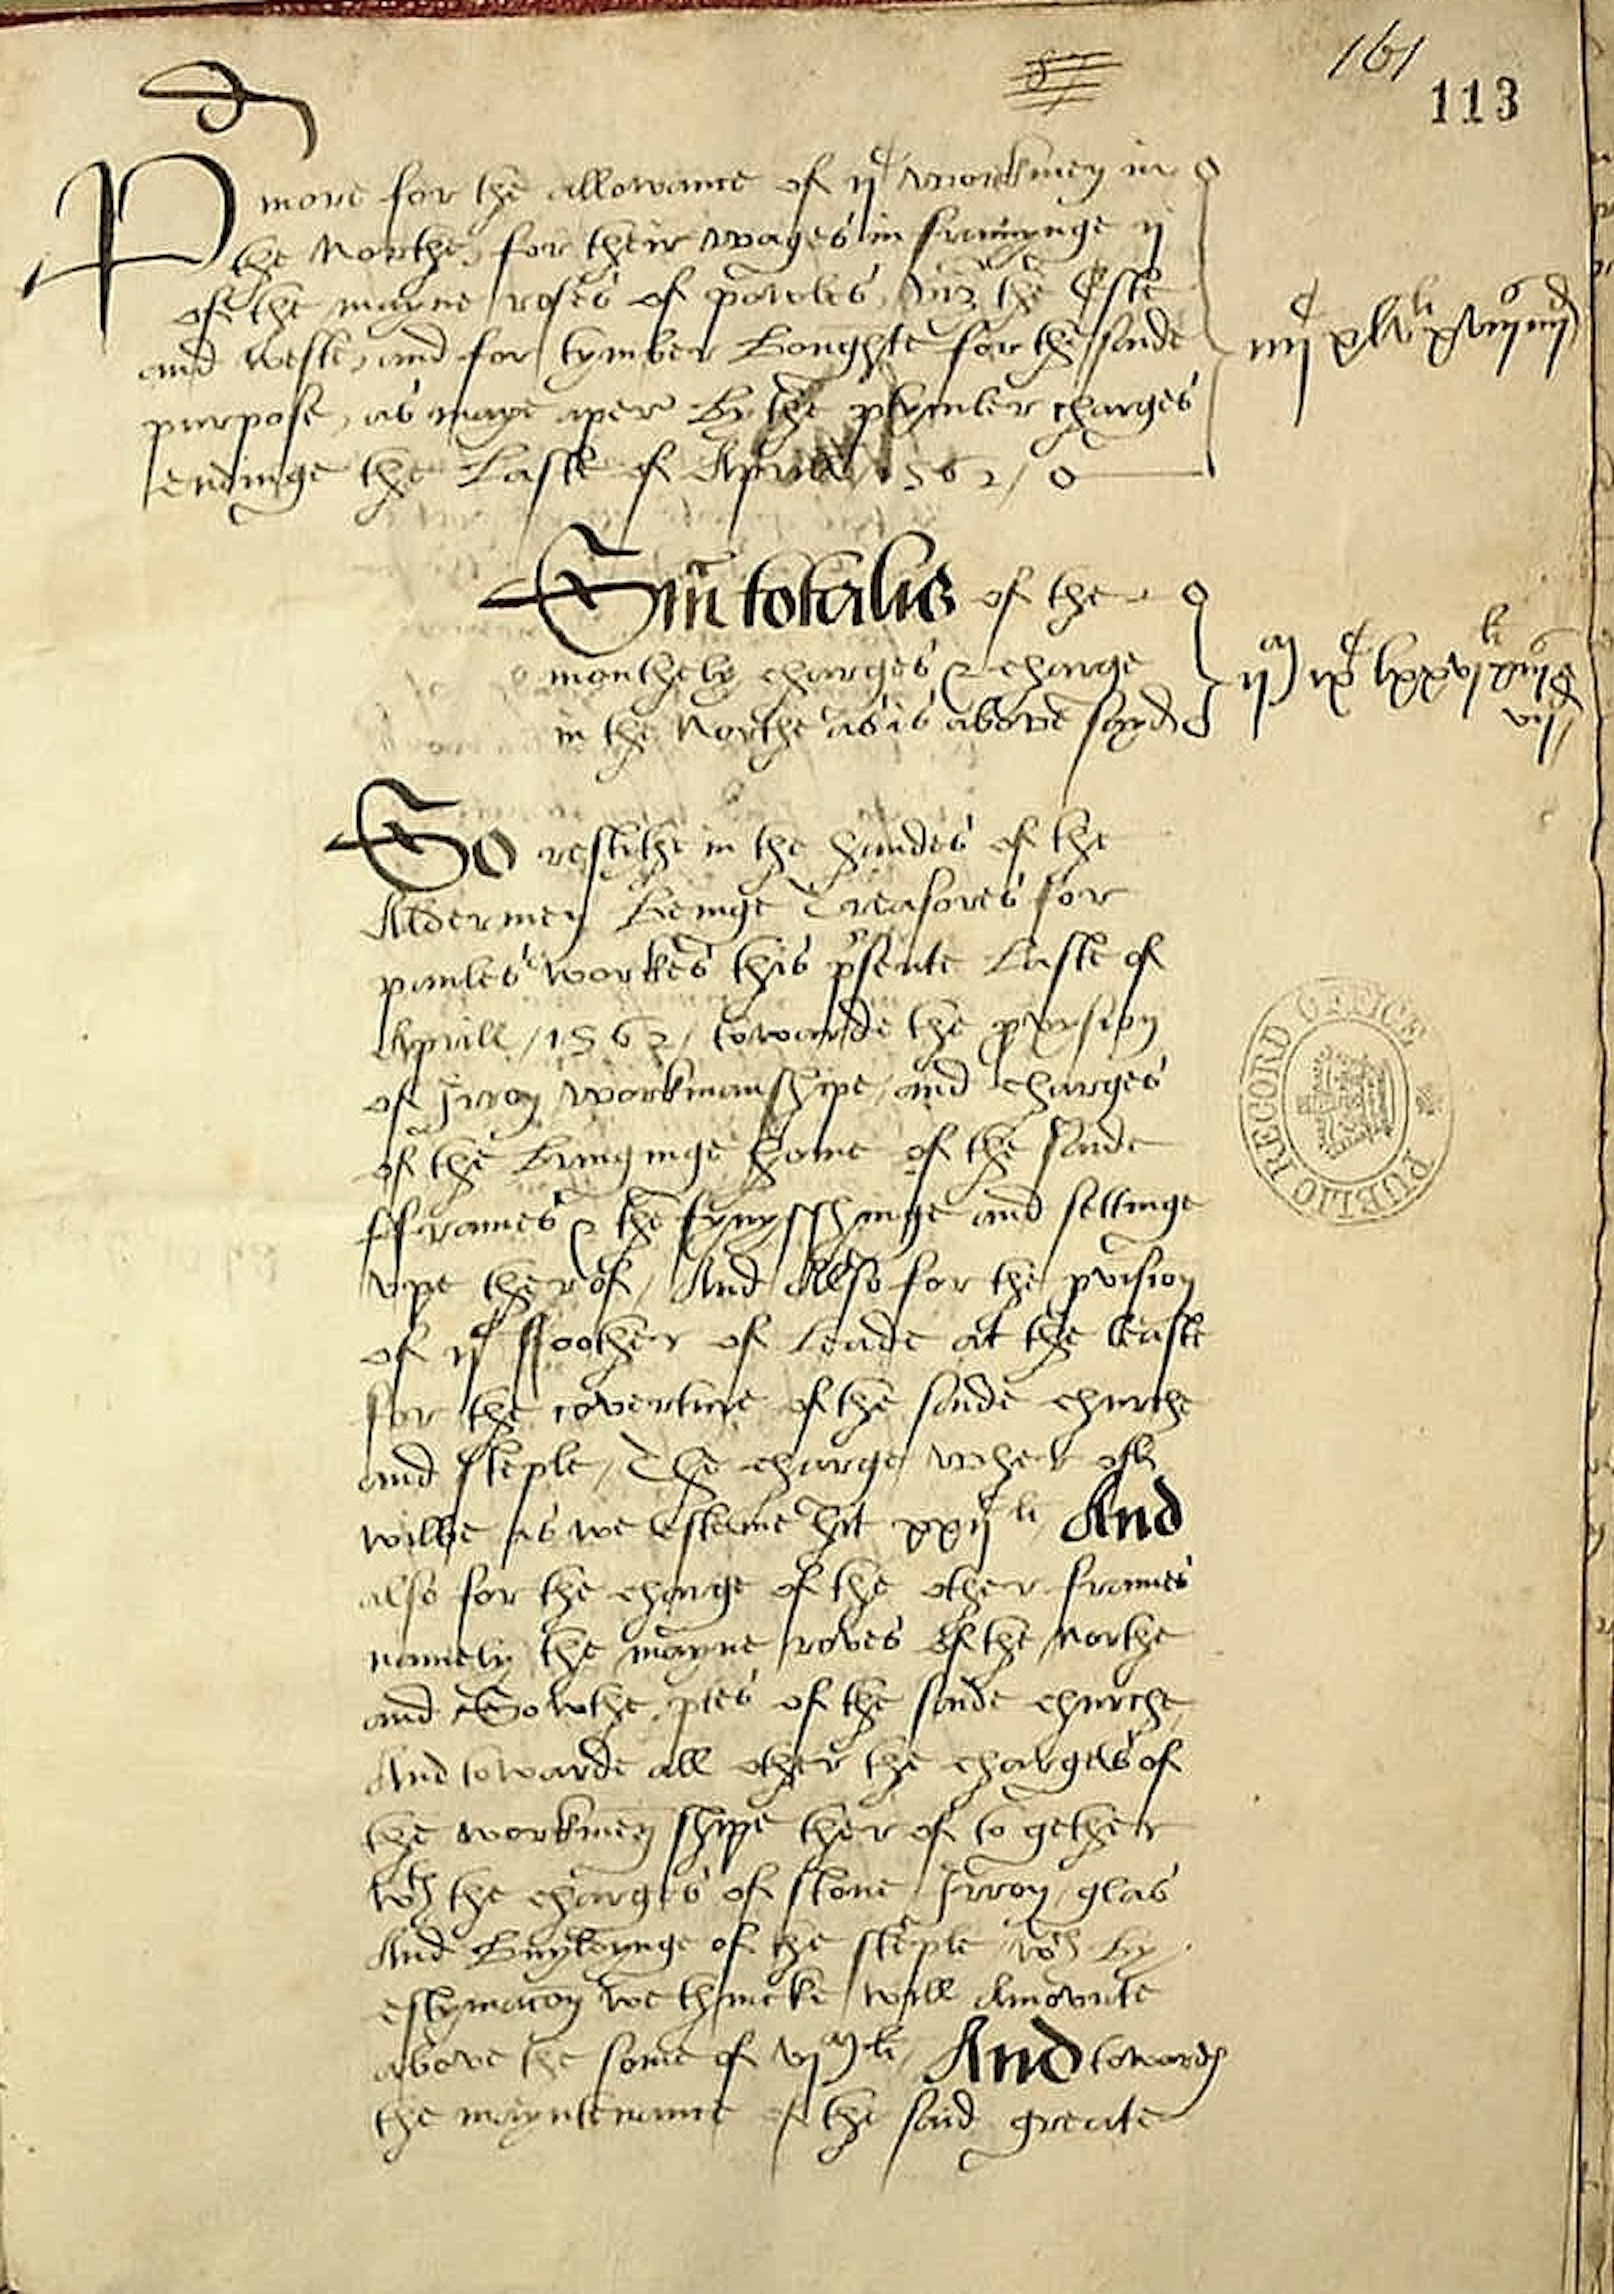 161
113
P more for the allowance of ijC workmen in
the Northe for their wages in framynge ij
of the mayne rofes of powles viz the Este
and Weste, and for tymber boughte for the saide
purpose, as maye aper by the ptyculer charges
endinge the laste of Aprill / 1562 /
iiijC xlv li xviijs iiijd
Sm totalis of the
monthely charges & charge
in the Northe as is above sayd
ijM ixC lxxvj li xiijs
vijd
So restithe in the handes of the
Aldermen beinge Treasores for
paules workes this psente laste of
Aprill / 1562 / towarde the pvision
of Irron workmanshipe, and charges
of the bringinge home of the saide
fframes & the fynysshinge and settinge
vpe therof / And allso for the pvision
of ijC ffoother of leade at the leaste
for the coverture of the saide churche
and steple, The charge wher of
wilbe as we esteame hit xxijC li And
also for the charge of the other frames
namely the mayne roves of the Northe
and Sowthe ptes of the saide churche
And towarde all other the charges of
the workmenshipe ther of to gether
wth the charges of stone Irron glas
And buyldynge of the steple wch by
estymacon we thincke will Amounte
above the some of vjM li, And towards
the mayntenance of the said greate
PUBLIC RECORD OFFICE